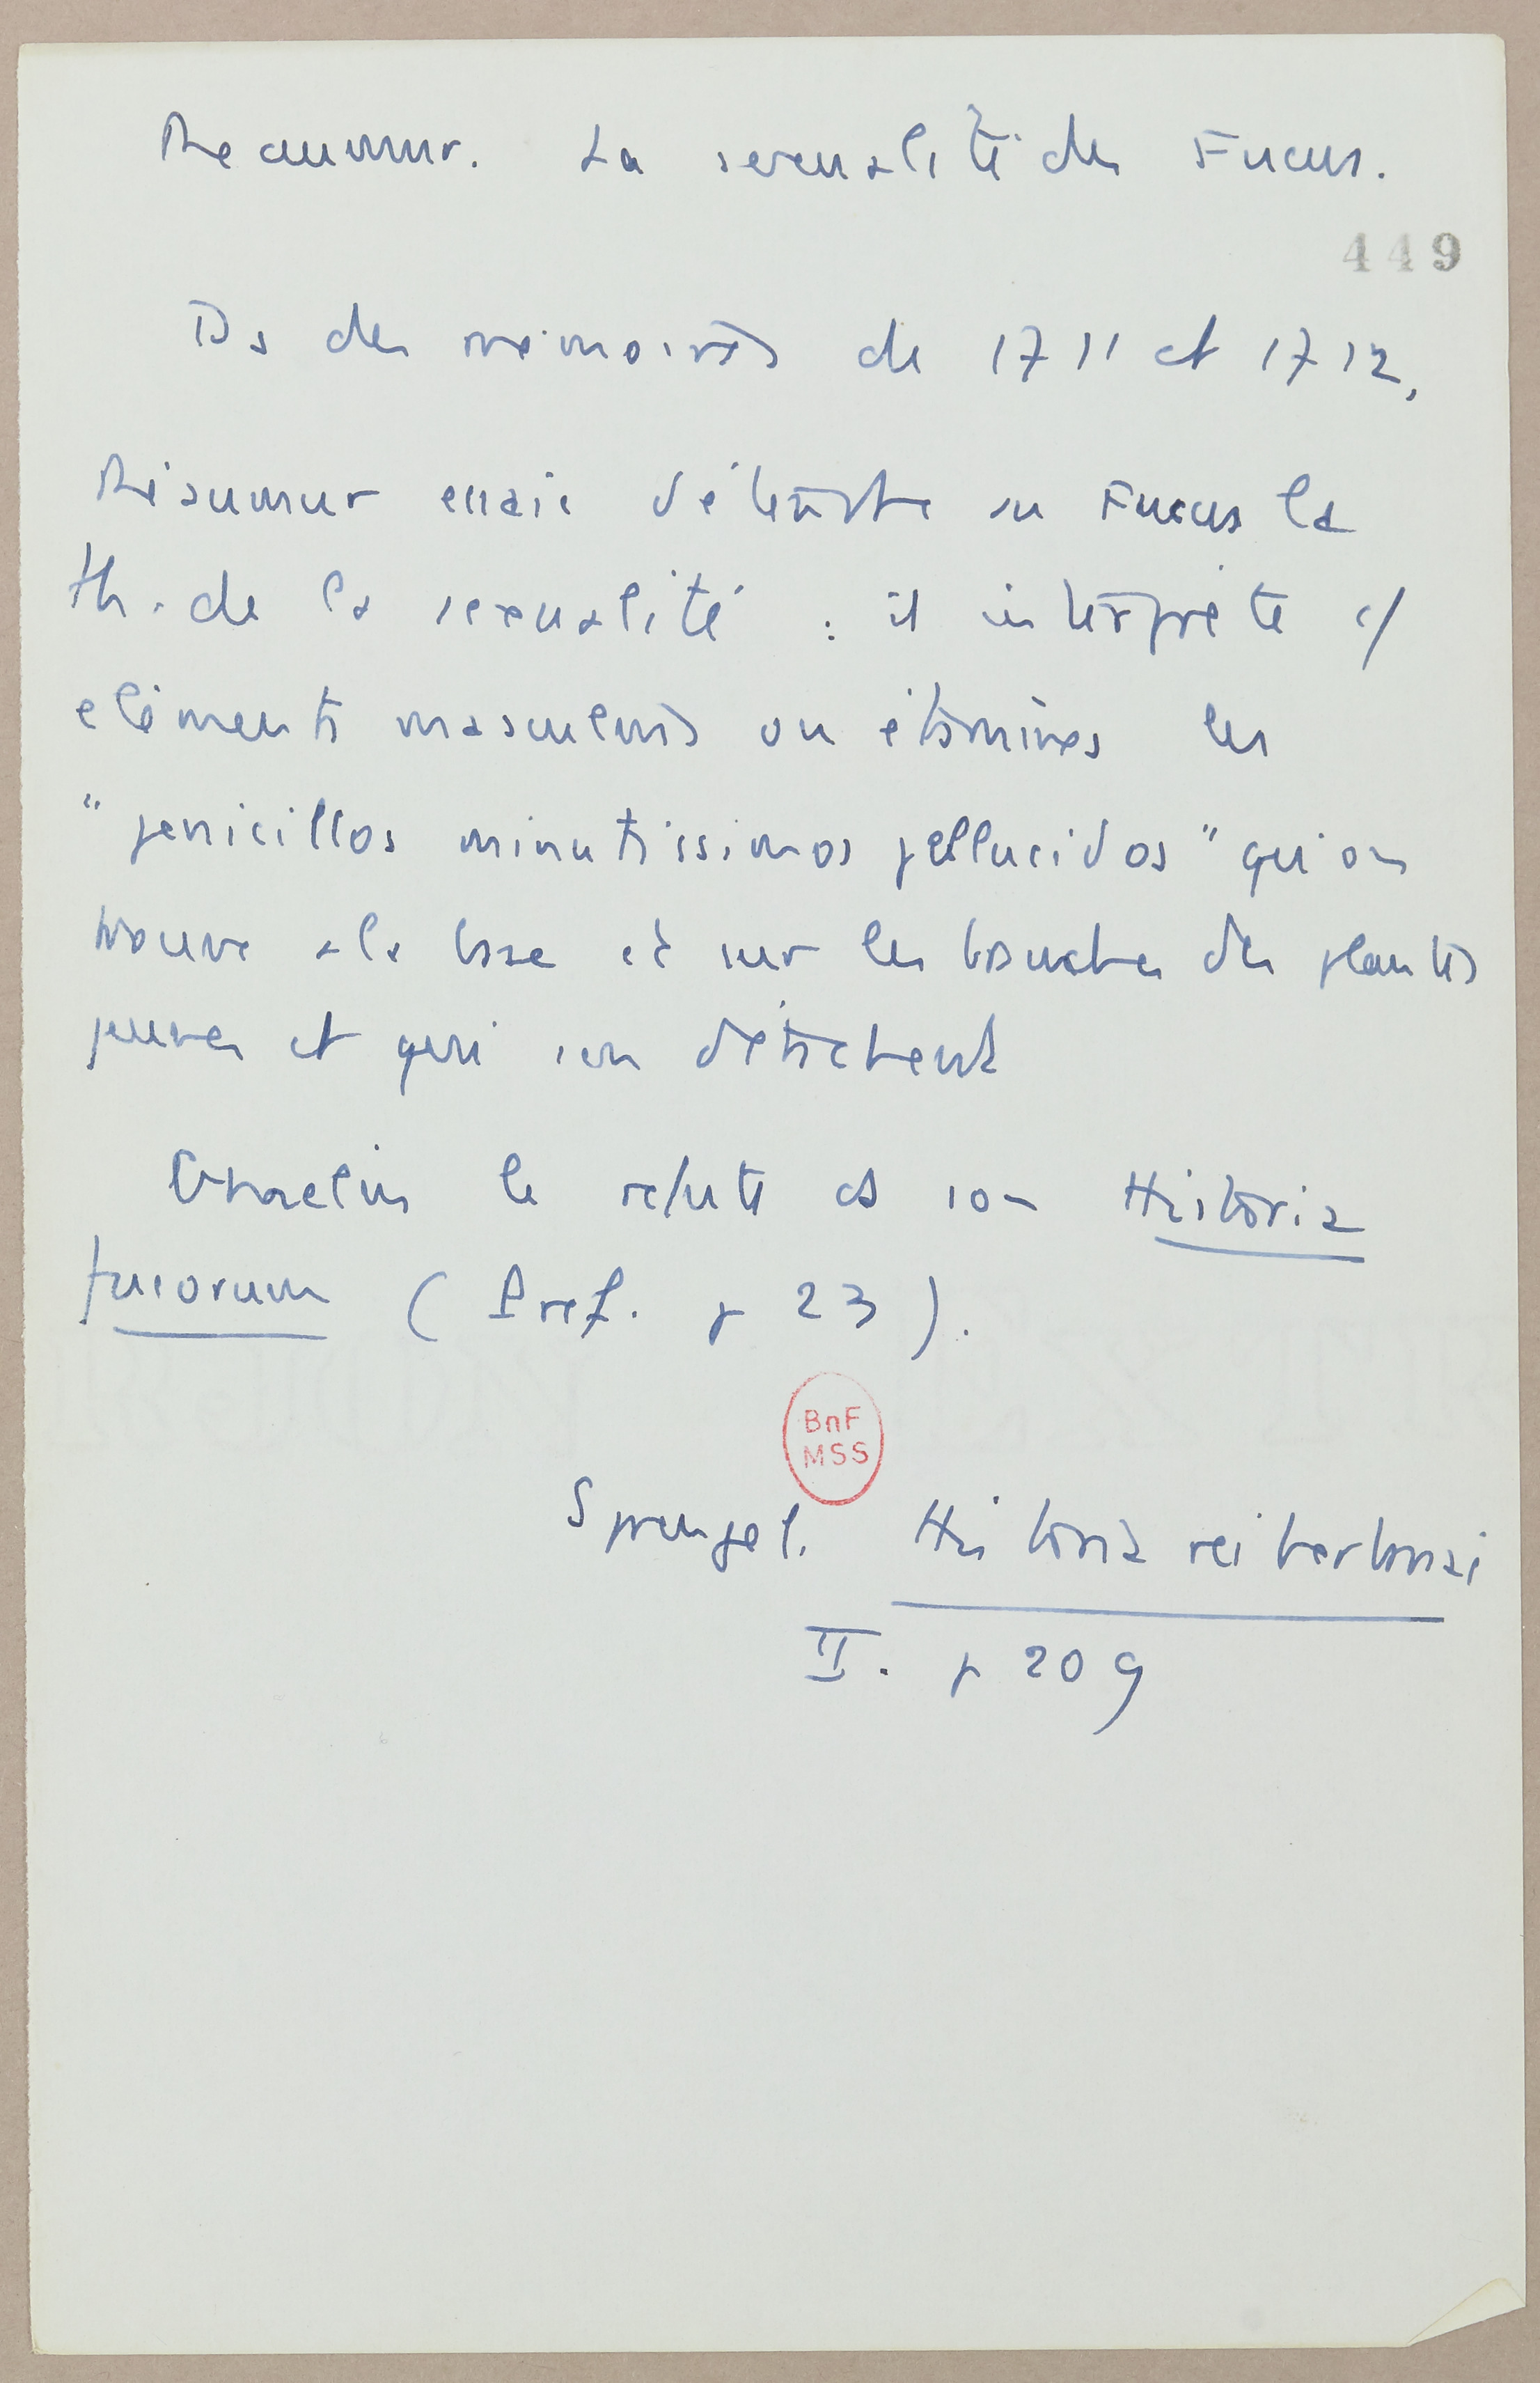 Reaumur. La sexualité des Fucus.
449
Ds des mémoires de 1711 et 1712,
Réaumur essaie d'étendre au Fucus la
th. de la sexualité : il interprète c/
éléments masculins ou étamines les
"penicillos minutissimos pellucidos" qu'on
trouve à la base et sur les branches des plantes
jeunes et qui s'en détachent
Gmelin le réfute ds son Historia
fucorum (Pref. p 23).
BnF
MSS
Sprengel. Historia rei herbariae
II. p 209